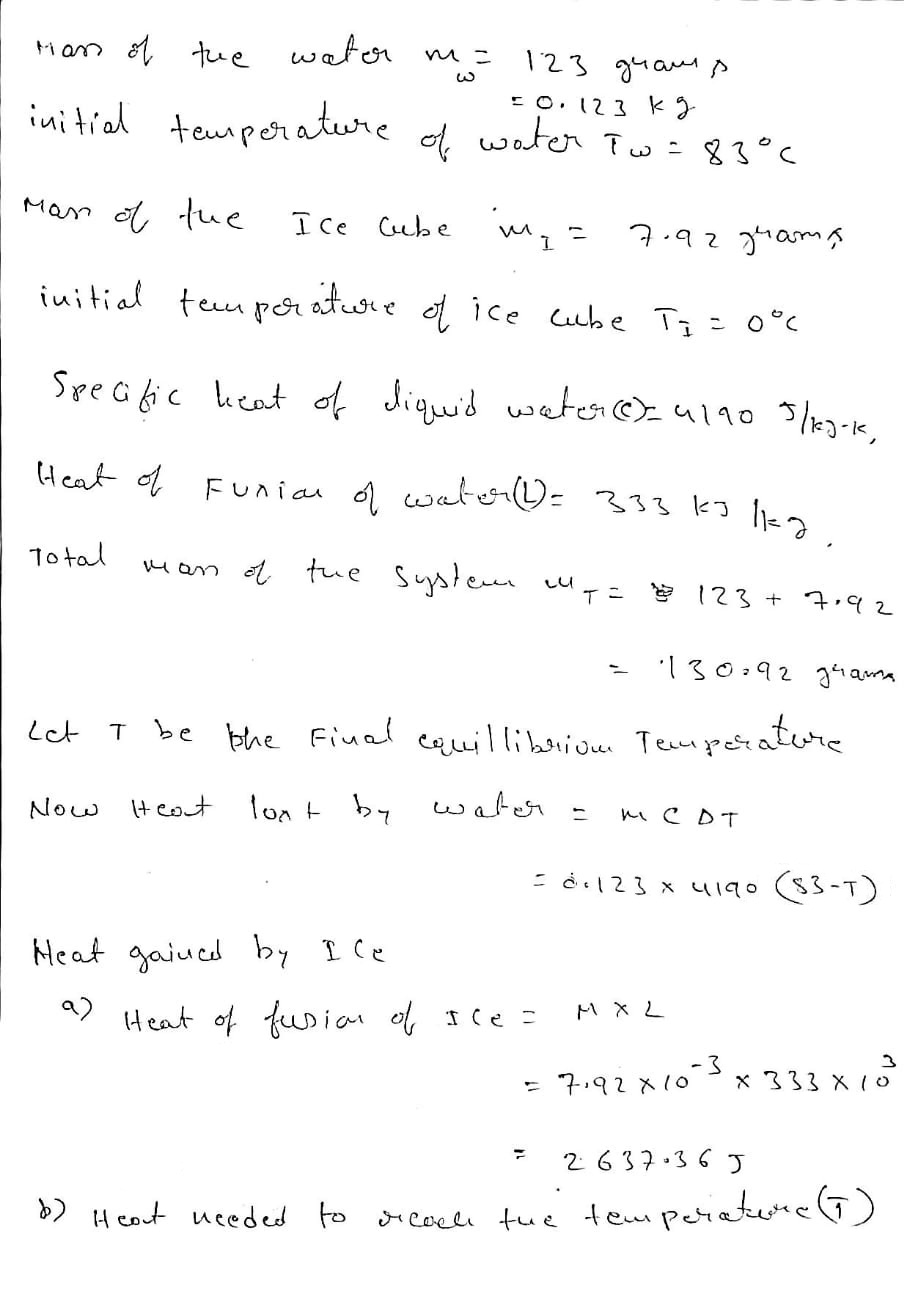 Mass of the water m_w = 123 grams
= 0.123 kg
initial temperature of water Tw = 83°C
Mass of the Ice Cube m_I = 7.92 grams
initial temperature of ice cube T_I = 0°C
Specific heat of liquid water(c)= 4190 J/kg-k,
Heat of Fusion of water(L)= 333 kJ/kg.
Total mass of the system m_T = 123 + 7.92
= 130.92 grams
Let T be the Final equillibrium Temperature
Now Heat lost by water = m C DT
= 0.123 x 4190 (83-T)
Heat gained by ICe
a) Heat of fusion of ICe = M X L
= 7.92 x 10^-3 x 333 x 10^3
= 2637.36 J
b) Heat needed to reach the temperature(T)